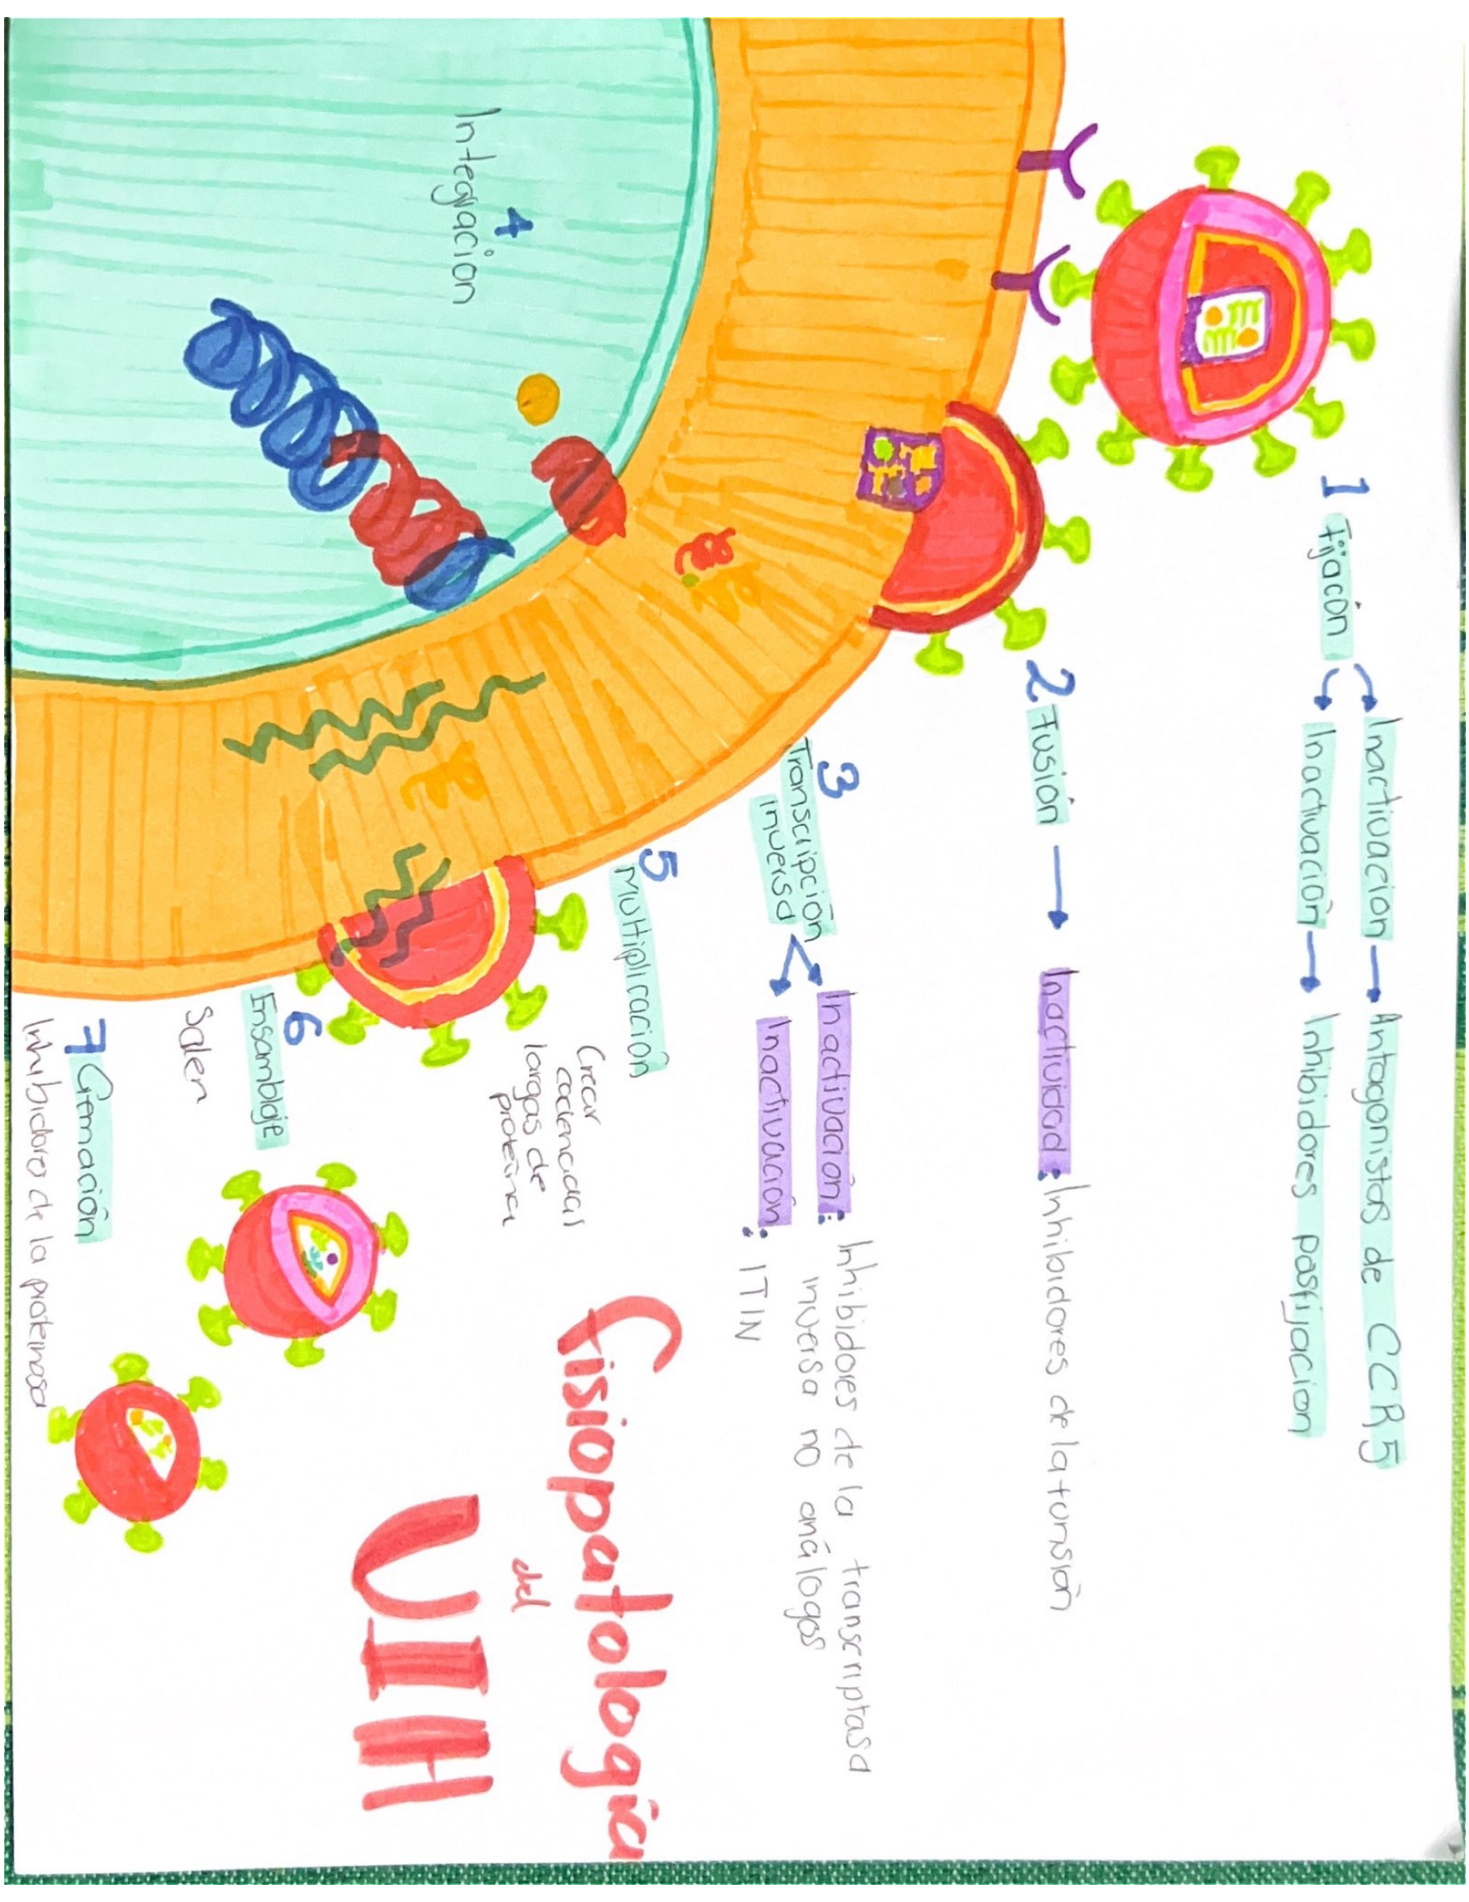 1 Fijacón
Inactivacion → Antagonistas de CCR5
Inactivación → Inhibidores posfijacion
2 Fusión → Inactividad: Inhibidores de la funsión
3
Transcripción
inversa
Inactivación: Inhibidores de la transcriptasa
inversa no análogos
Inactivación: ITIN
4
Integracion
5
Multiplicación
Crear
largas de
proteina
6
Ensamblaje
Salen
7 Gemación
Inhibidores de la proteinasa
Fisiopatología
del
VIH